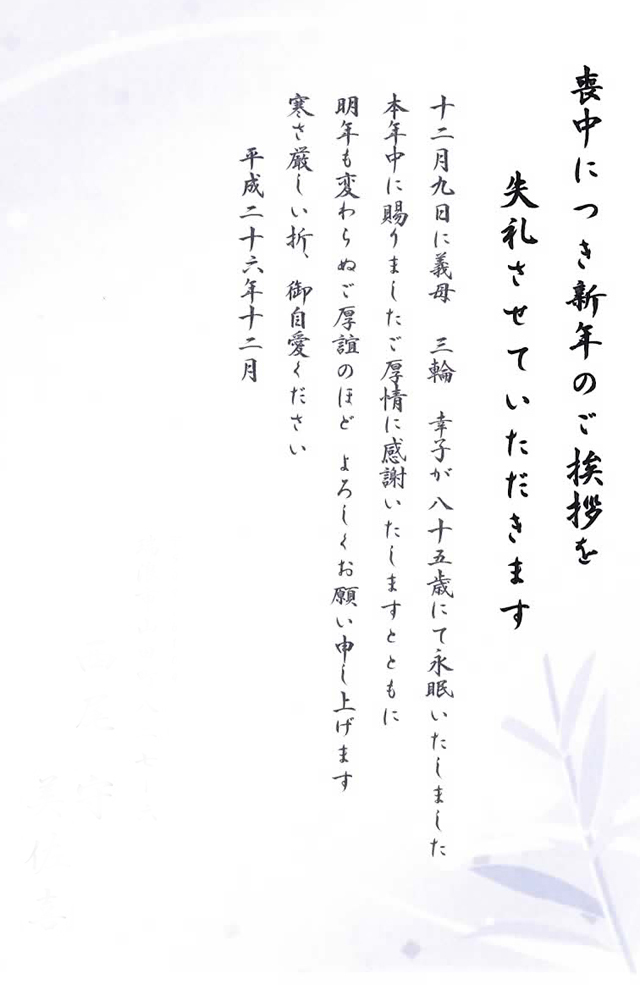 喪中につき新年のご挨拶を
失礼させていただきます
十二月九日に義母　三輪　幸子が八十五歳にて永眠いたしました
本年中に賜りましたご厚情に感謝いたしますとともに
明年も変わらぬご厚誼のほど よろしくお願い申し上げます
寒さ厳しい折、御自愛ください
平成二十六年十二月